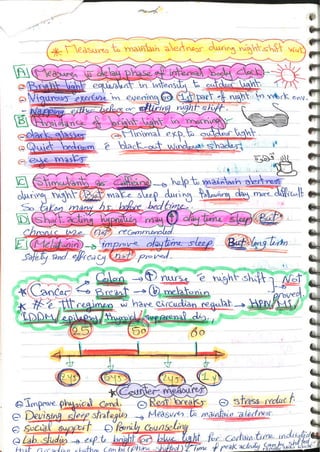 * Measures to maintain alertness during night shift work
A Measures to delay phase of internal body clock
Bright light equivalent in intensity to outdoor light
Vigorous exercise in evening or 1st part of night in work env.
Napping either before or during night shift
B Avoidance of bright light in morning
dark glasses Minimal exp. to outdoor light
Quiet bedroom c̄ black-out window shades
eye masks
C Stimulants as caffeine → help to maintain alertness
during night But make sleep during following day more difficult
So taken many hr before bedtime
D Short acting hypnotics may ↑ day time sleep But
chronic use not recommended
E Melatonin → improve daytime sleep But long term
safety and efficacy not proved
* Cancer Colon → ↑ nurse c̄ night shift Not
Breast → melatonin proved
regimen have circadian regulat. → HPN
IDDM, epilepsy, thyroid, suprarenal dis.
25 50 60
2ys 1y
* Counter measures
Improve physical cond. Rest breaks stress reduct.
Devising sleep strategies → Measures to maintain alertness
social support Family Counseling
Lab studies → exp. to bright or blue light for certain time